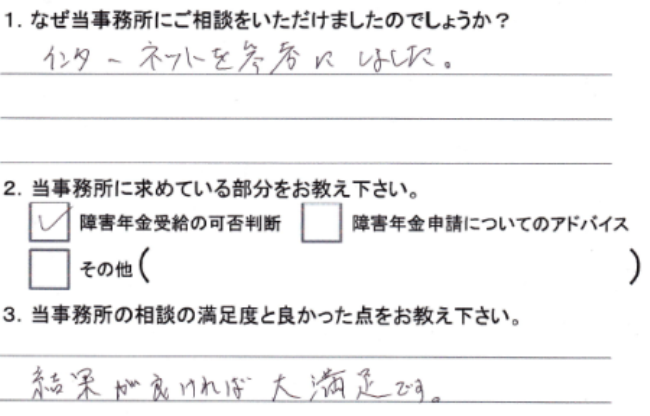 1. なぜ当事務所にご相談をいただけましたのでしょうか？
インターネットを参考にしました。
2. 当事務所に求めている部分をお教え下さい。
障害年金受給の可否判断 障害年金申請についてのアドバイス
その他( )
3. 当事務所の相談の満足度と良かった点をお教え下さい。
結果が良ければ大満足です。